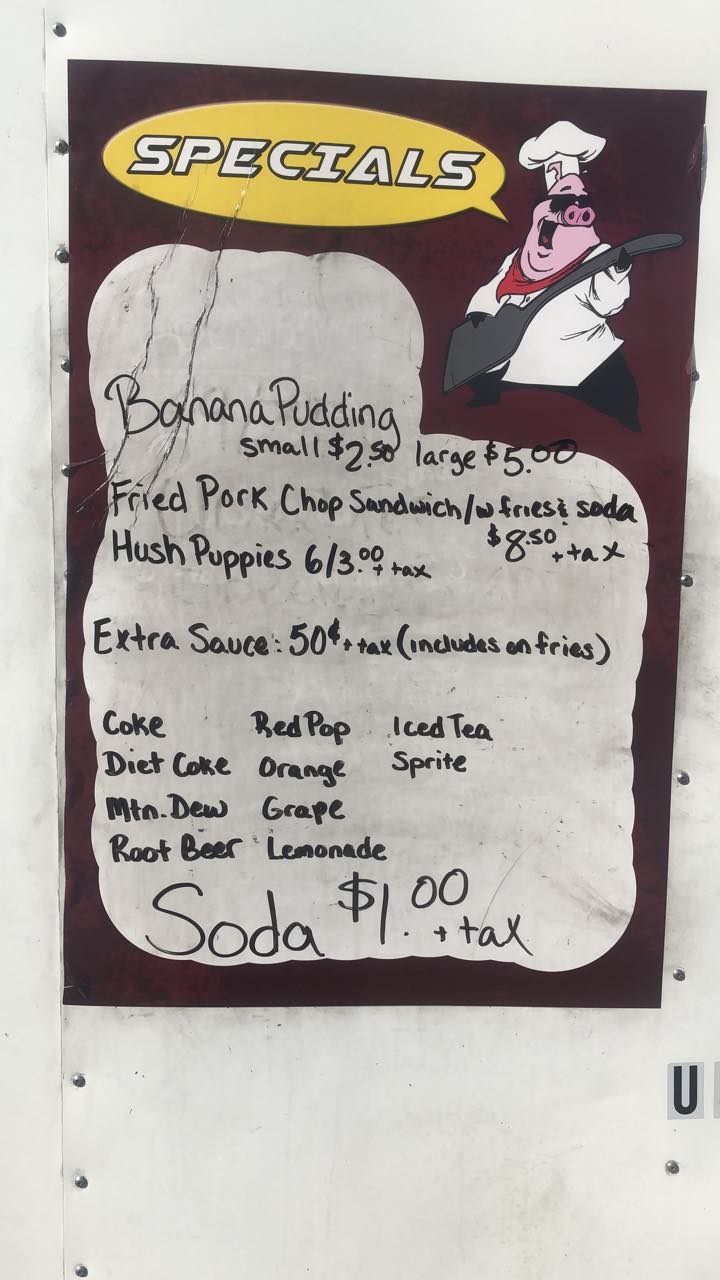 SPECIALS
Banana Pudding
small $2.50 large $5.00
Fried Pork Chop Sandwich/w fries & soda
$8.50 + tax
Hush Puppies 6/3.00 + tax
Extra Sauce: 50¢ + tax (includes on fries)
Coke Red Pop Iced Tea
Diet Coke Orange Sprite
Mtn. Dew Grape
Root Beer Lemonade
Soda $1.00 + tax
U